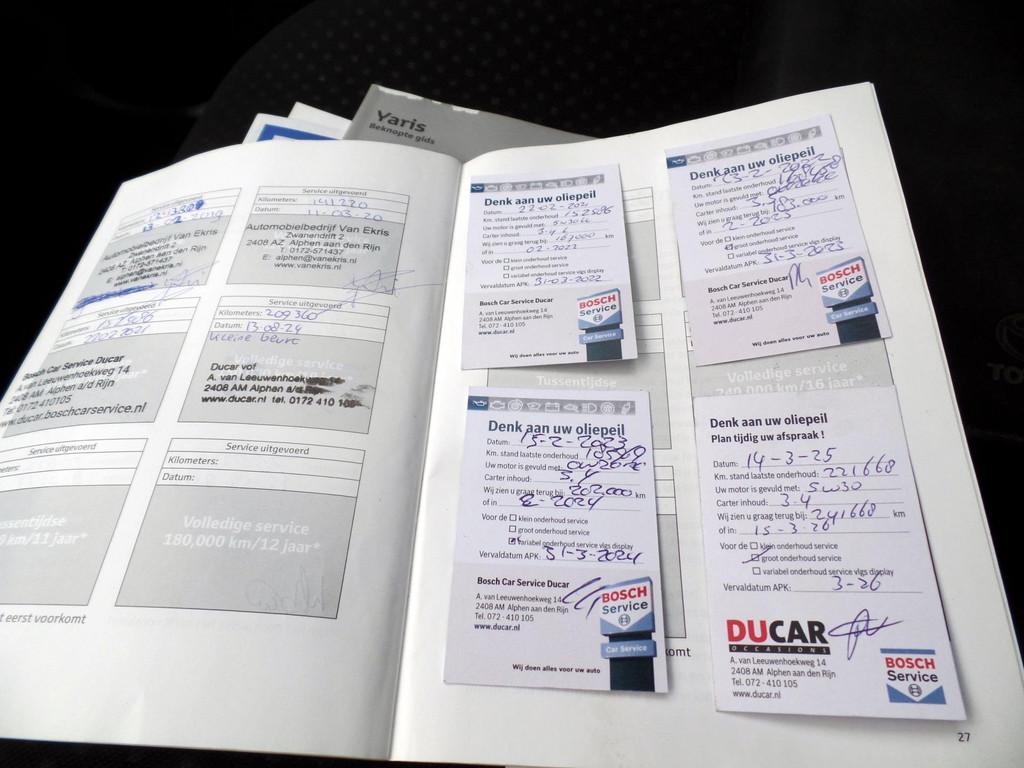 Yaris
Beknopte gids
Automobielbedrijf Van Ekris
Zwanendrift 2
2408 AZ Alphen aan den Rijn
T: 0172-571437
E: alphen@vanekris.nl
www.vanekris.nl
Service uitgevoerd
Kilometers: 141220
Datum: 11-03-20
Automobielbedrijf Van Ekris
Zwanendrift 2
2408 AZ Alphen aan den Rijn
T: 0172-571437
E: alphen@vanekris.nl
www.vanekris.nl
Service uitgevoerd
Bosch Car Service Ducar
A. van Leeuwenhoekweg 14
2408 AM Alphen a/d Rijn
Tel. 0172 410105
www.ducar.boschcarservice.nl
Service uitgevoerd
Kilometers: 209360
Datum: 13-08-24
kleine beurt
Volledige service
Ducar vof
A. van Leeuwenhoekweg
2408 AM Alphen a/d
www.ducar.nl tel. 0172 410 105
Service uitgevoerd
Service uitgevoerd
Kilometers:
Datum:
Volledige service
180,000 km/12 jaar*
t eerst voorkomt
Denk aan uw oliepeil
Datum: 22-02-2021
Km. stand laatste onderhoud: 152586
Uw motor is gevuld met: 5w30
Carter inhoud: 3.4
Wij zien u graag terug bij: 167000 km
of in 02-2022
Voor de klein onderhoud service
groot onderhoud service
variabel onderhoud service vlgs display
Vervaldatum APK: 31-03-2022
Bosch Car Service Ducar
A. van Leeuwenhoekweg 14
2408 AM Alphen aan den Rijn
Tel. 072 - 410 105
www.ducar.nl
BOSCH
Service
Car Service
Wij doen alles voor uw auto
Denk aan uw oliepeil
Datum: 13-2-2022
Km. stand laatste onderhoud
Uw motor is gevuld met:
Carter inhoud: 3.4
Wij zien u graag terug bij: 183.000 km
of in 2-2023
Voor de klein onderhoud service
groot onderhoud service
variabel onderhoud service vlgs display
Vervaldatum APK: 31-3-2023
Bosch Car Service Ducar
A. van Leeuwenhoekweg 14
2408 AM Alphen aan den Rijn
Tel. 072 - 410 105
www.ducar.nl
BOSCH
Service
Car Service
Wij doen alles voor uw auto
Tussentijdse
Volledige service
240,000 km/16 jaar*
Denk aan uw oliepeil
Datum: 15-2-2023
Km. stand laatste onderhoud
Uw motor is gevuld met: 0w20
Carter inhoud: 3.4
Wij zien u graag terug bij: 202,000 km
of in 2-2024
Voor de klein onderhoud service
groot onderhoud service
variabel onderhoud service vlgs display
Vervaldatum APK: 31-3-2024
Bosch Car Service Ducar
A. van Leeuwenhoekweg 14
2408 AM Alphen aan den Rijn
Tel. 072 - 410 105
www.ducar.nl
BOSCH
Service
Car Service
Wij doen alles voor uw auto
Denk aan uw oliepeil
Plan tijdig uw afspraak !
Datum: 14-3-25
Km. stand laatste onderhoud: 221668
Uw motor is gevuld met: 5w30
Carter inhoud: 3.4
Wij zien u graag terug bij: 241668 km
of in: 15-3-26
Voor de klein onderhoud service
groot onderhoud service
variabel onderhoud service vlgs display
Vervaldatum APK: 3-26
DUCAR
OCCASIONS
A. van Leeuwenhoekweg 14
2408 AM Alphen aan den Rijn
Tel. 072 - 410 105
www.ducar.nl
BOSCH
Service
komt
27